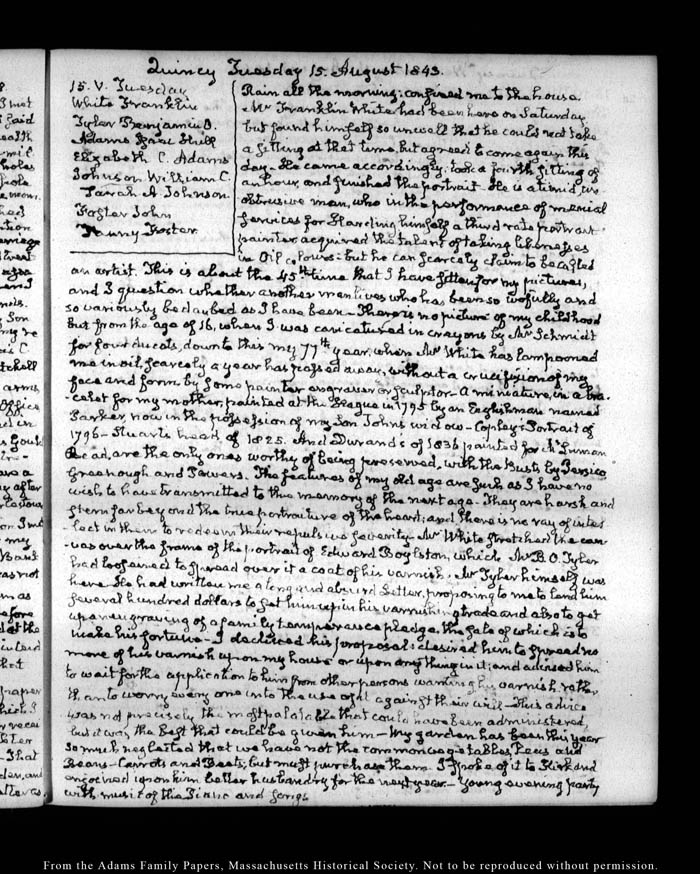 Quincy Tuesday 15. August 1843.
15. V. Tuesday
White Franklin
Tyler Benjamin O.
Adams Isaac Hull
Elizabeth C. Adams
Johnson William C.
Sarah A Johnson
Foster John
Fanny Foster
Rain all the morning: confined me to the house.
Mr Franklin White had been here on Saturday
but found himself so unwell that he could not take
a sitting at that time, but agreed to come again this
day. He came accordingly; took a fourth sitting of
an hour, and finished the portrait. He is a timid un-
obtrusive man, who in the performance of menial
services for Harding himself a third rate portrait
painter acquired the talent of taking likenesses
in Oil Colours: but he can scarcely claim to be called
an artist. This is about the 45th time that I have sitten for my pictures,
and I question whether another man lives who has been so wofully and
so variously bedaubed as I have been—There is no picture of my childhood
But from the age of 16, when I was caricatured in crayons by Mr Schmidt
for four ducats, down to this my 77th year, when Mr White has lampooned
me in oil, scarcely a year has passed away, without a crucifixion of my
face and form by some painter engraver or sculptor—A miniature, in a bra-
celet for my mother, painted at the Hague in 1795 by an Englishman named
Parker now in the possession of my Son Johns widow—Copley's Portrait of
1796—Stuarts head of 1825. And Durand's of 1836 painted for Mr Luman
Reed, are the only ones worthy of being preserved, with the Busts by Persico
Greenough and Powers. The features of my old age are such as I have no
wish to have transmitted to the memory of the next age. They are harsh and
stern far beyond the true portraiture of the heart; and there is no ray of intel
lect in them to redeem their repulsive severity—Mr White stretched the can-
vas over the frame of the portrait of Edward Boylston, which Mr B. O. Tyler
had loosened to spread over it a coat of his varnish. Mr Tyler himself was
here. He had written me a long and absurd Letter, proposing to me to lend him
several hundred dollars to set him up in his varnishing trade and also to get
up an engraving of a family temperance pledge, the sale of which is to
make his fortune—I declined his proposal: desired him to spread no
more of his varnish upon my house or upon any thing in it; and advised him
to wait for the application to him from other persons wanting his varnish, rather
than to worry every one into the use of it against their will—This advice
was not precisely the most palatable that could have been administered,
but it was the best that could be given him—My garden has been this year
so much neglected that we have not the common vegetables, Peas and
Beans—Carrots and Beets, but must purchase them. I spoke of it to Kirk and
enjoined upon him better husbandry for the next year.—Young evening party
with music of the Piano and songs
From the Adams Family Papers, Massachusetts Historical Society. Not to be reproduced without permission.